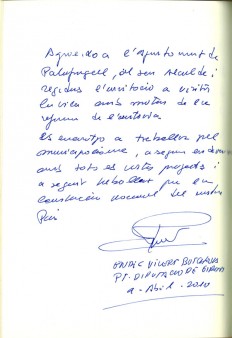 Agraeixo a l'Ajuntament de
Palafrugell, al seu Alcalde i
regidors l'invitació a visitar
la vila amb motiu de la
de l'
Us encoratjo a treballar pel
municipalisme, a seguir endavant
amb tots els vostres projectes i
a seguir treballant per la
construcció nacional del nostre
País
ENRIC VILERT BUTCHOSA
PT. DIPUTACIÓ DE GIRONA
Abril 2010